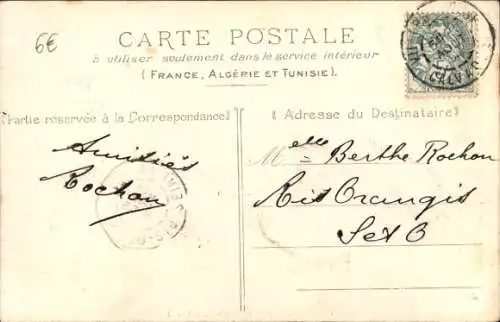 6€
CARTE POSTALE
à utiliser seulement dans le service intérieur
(FRANCE, ALGÉRIE ET TUNISIE).
(Partie réservée à la Correspondance)
(Adresse du Destinataire)
Amitiés
Rochon
Melle Berthe Rochon
Ris Orangis
S et O